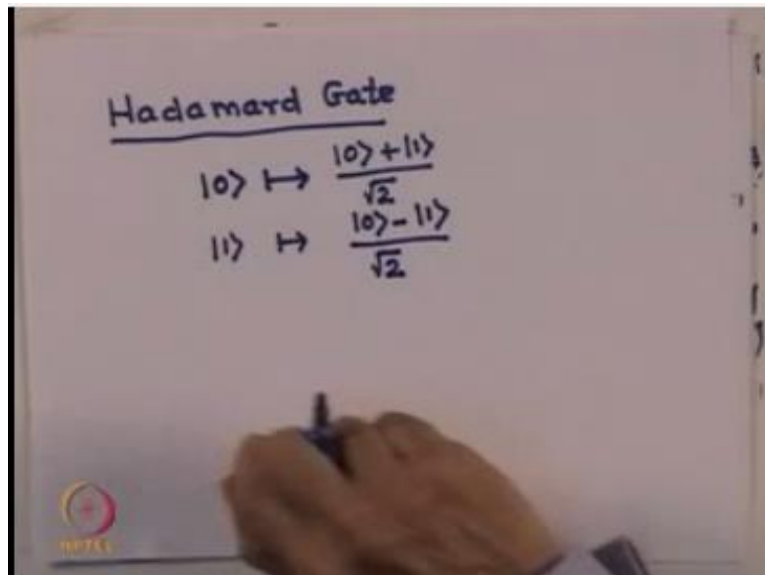 Hadamard Gate
|0⟩ ↦ |0⟩ + |1⟩ / √2
|1⟩ ↦ |0⟩ - |1⟩ / √2
NPTEL